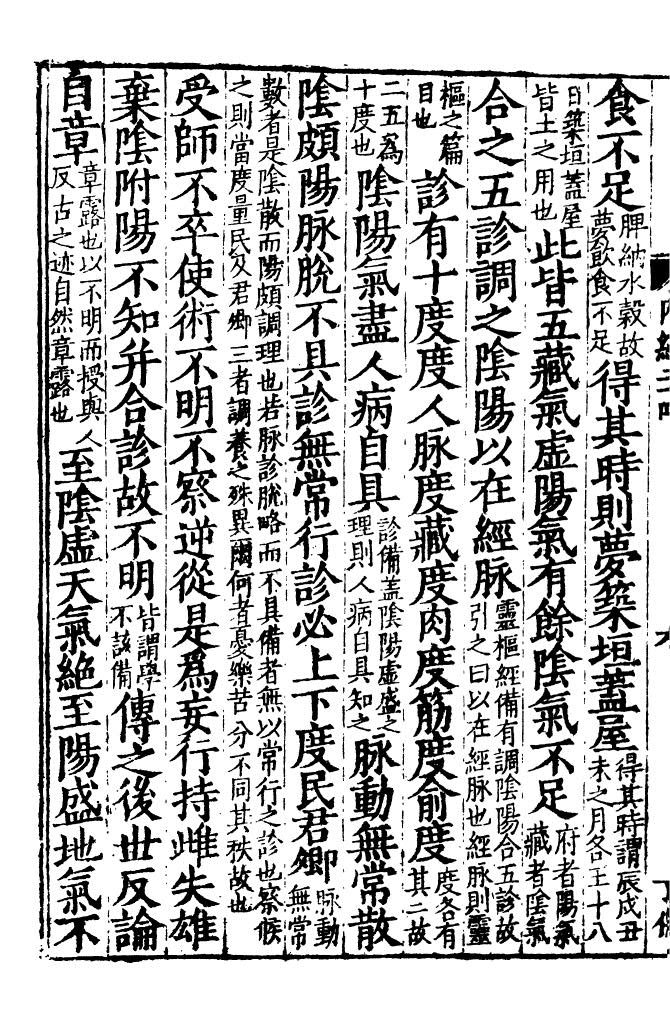 食不足脾納水穀故夢飲食不足得其時則夢築垣蓋屋得其時謂辰戌丑未之月各王十八
日築垣蓋屋皆土之用也此皆五藏氣虛陽氣有餘陰氣不足府者陽氣藏者陰氣
合之五診調之陰陽以在經脉靈樞經備有調陰陽合五診故引之曰以在經脉也經脉則靈
樞之篇目也診有十度度人脉度藏度肉度筋度俞度度各有其二故
二五爲十度也陰陽氣盡人病自具診備蓋陰陽虛盛之理則人病自具知之脉動無常散
陰頗陽脉脫不具診無常行診必上下度民君卿脉動無常
數者是陰散而陽頗調理也若脉診脫略而不具備者無以常行之診也察候
之則當度量民及君卿三者調養之殊異爾何者憂樂苦分不同其秩故也
受師不卒使術不明不察逆從是爲妄行持雌失雄
棄陰附陽不知并合診故不明皆謂學不該備傳之後世反論
自章章露也以不明而授與人反古之迹自然章露也至陰虛天氣絕至陽盛地氣不